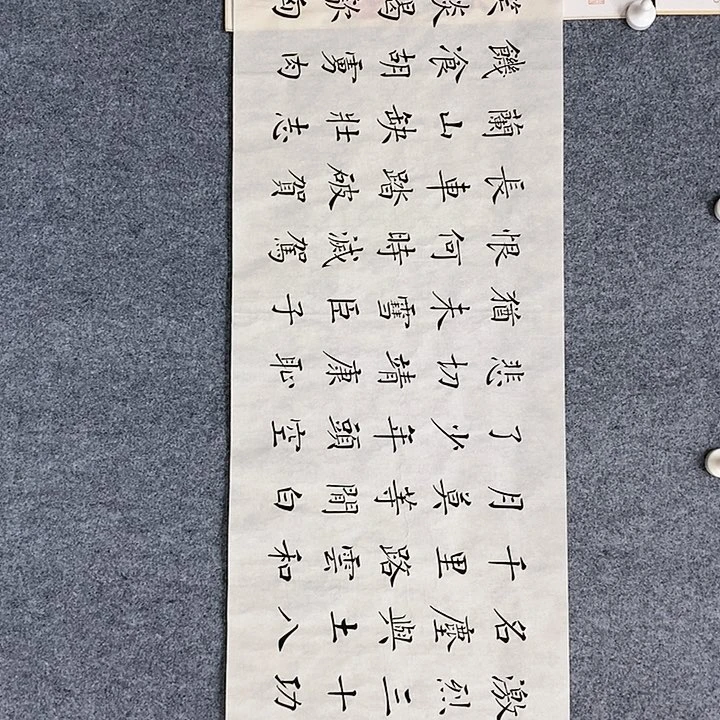 激烈三十功
名塵與土八
千里路雲和
月莫等閒白
了少年頭空
悲切靖康恥
猶未雪臣子
恨何時滅駕
長車踏破賀
蘭山缺壯志
饑飡胡虜肉